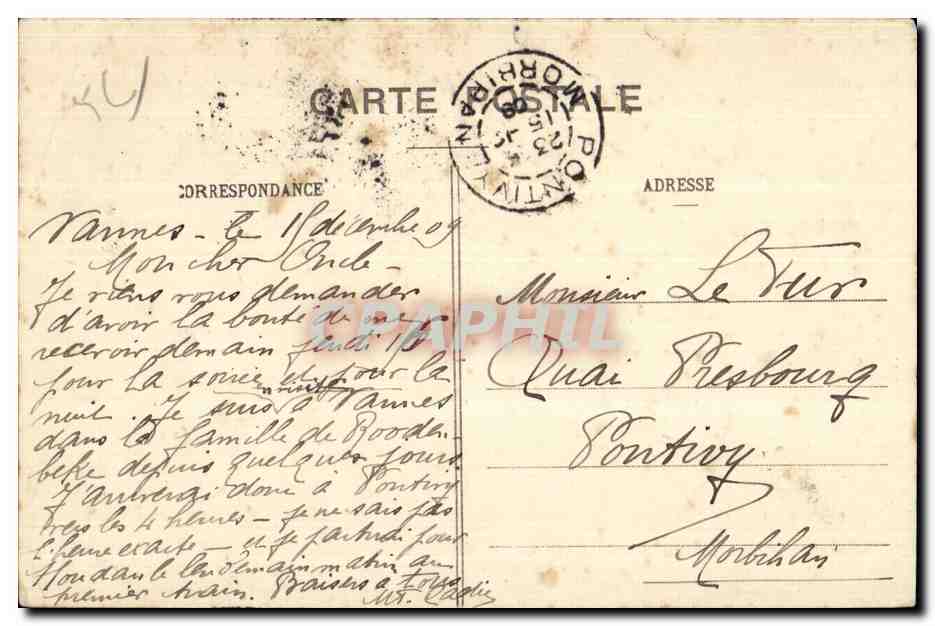 CARTE POSTALE
PONTIVY
MORBIHAN
23
15
09
CORRESPONDANCE
ADRESSE
Vannes - le 15 décembre 09
Mon cher Oncle -
Je viens vous demander
d'avoir la bonté de me
recevoir demain jeudi 16
pour la soirée et pour la
nuit. Je suis à Vannes
dans la famille de Rooden-
beke depuis quelques jours
J'arriverai donc à Pontivy
vers les 4 heures - je ne sais pas
l'heure exacte - et je partirai pour
Moudan le lendemain matin au
premier train. Baisers à tous
Monsieur Le Fur
Quai Presbourg
Pontivy
Morbihan
CPAPHIL